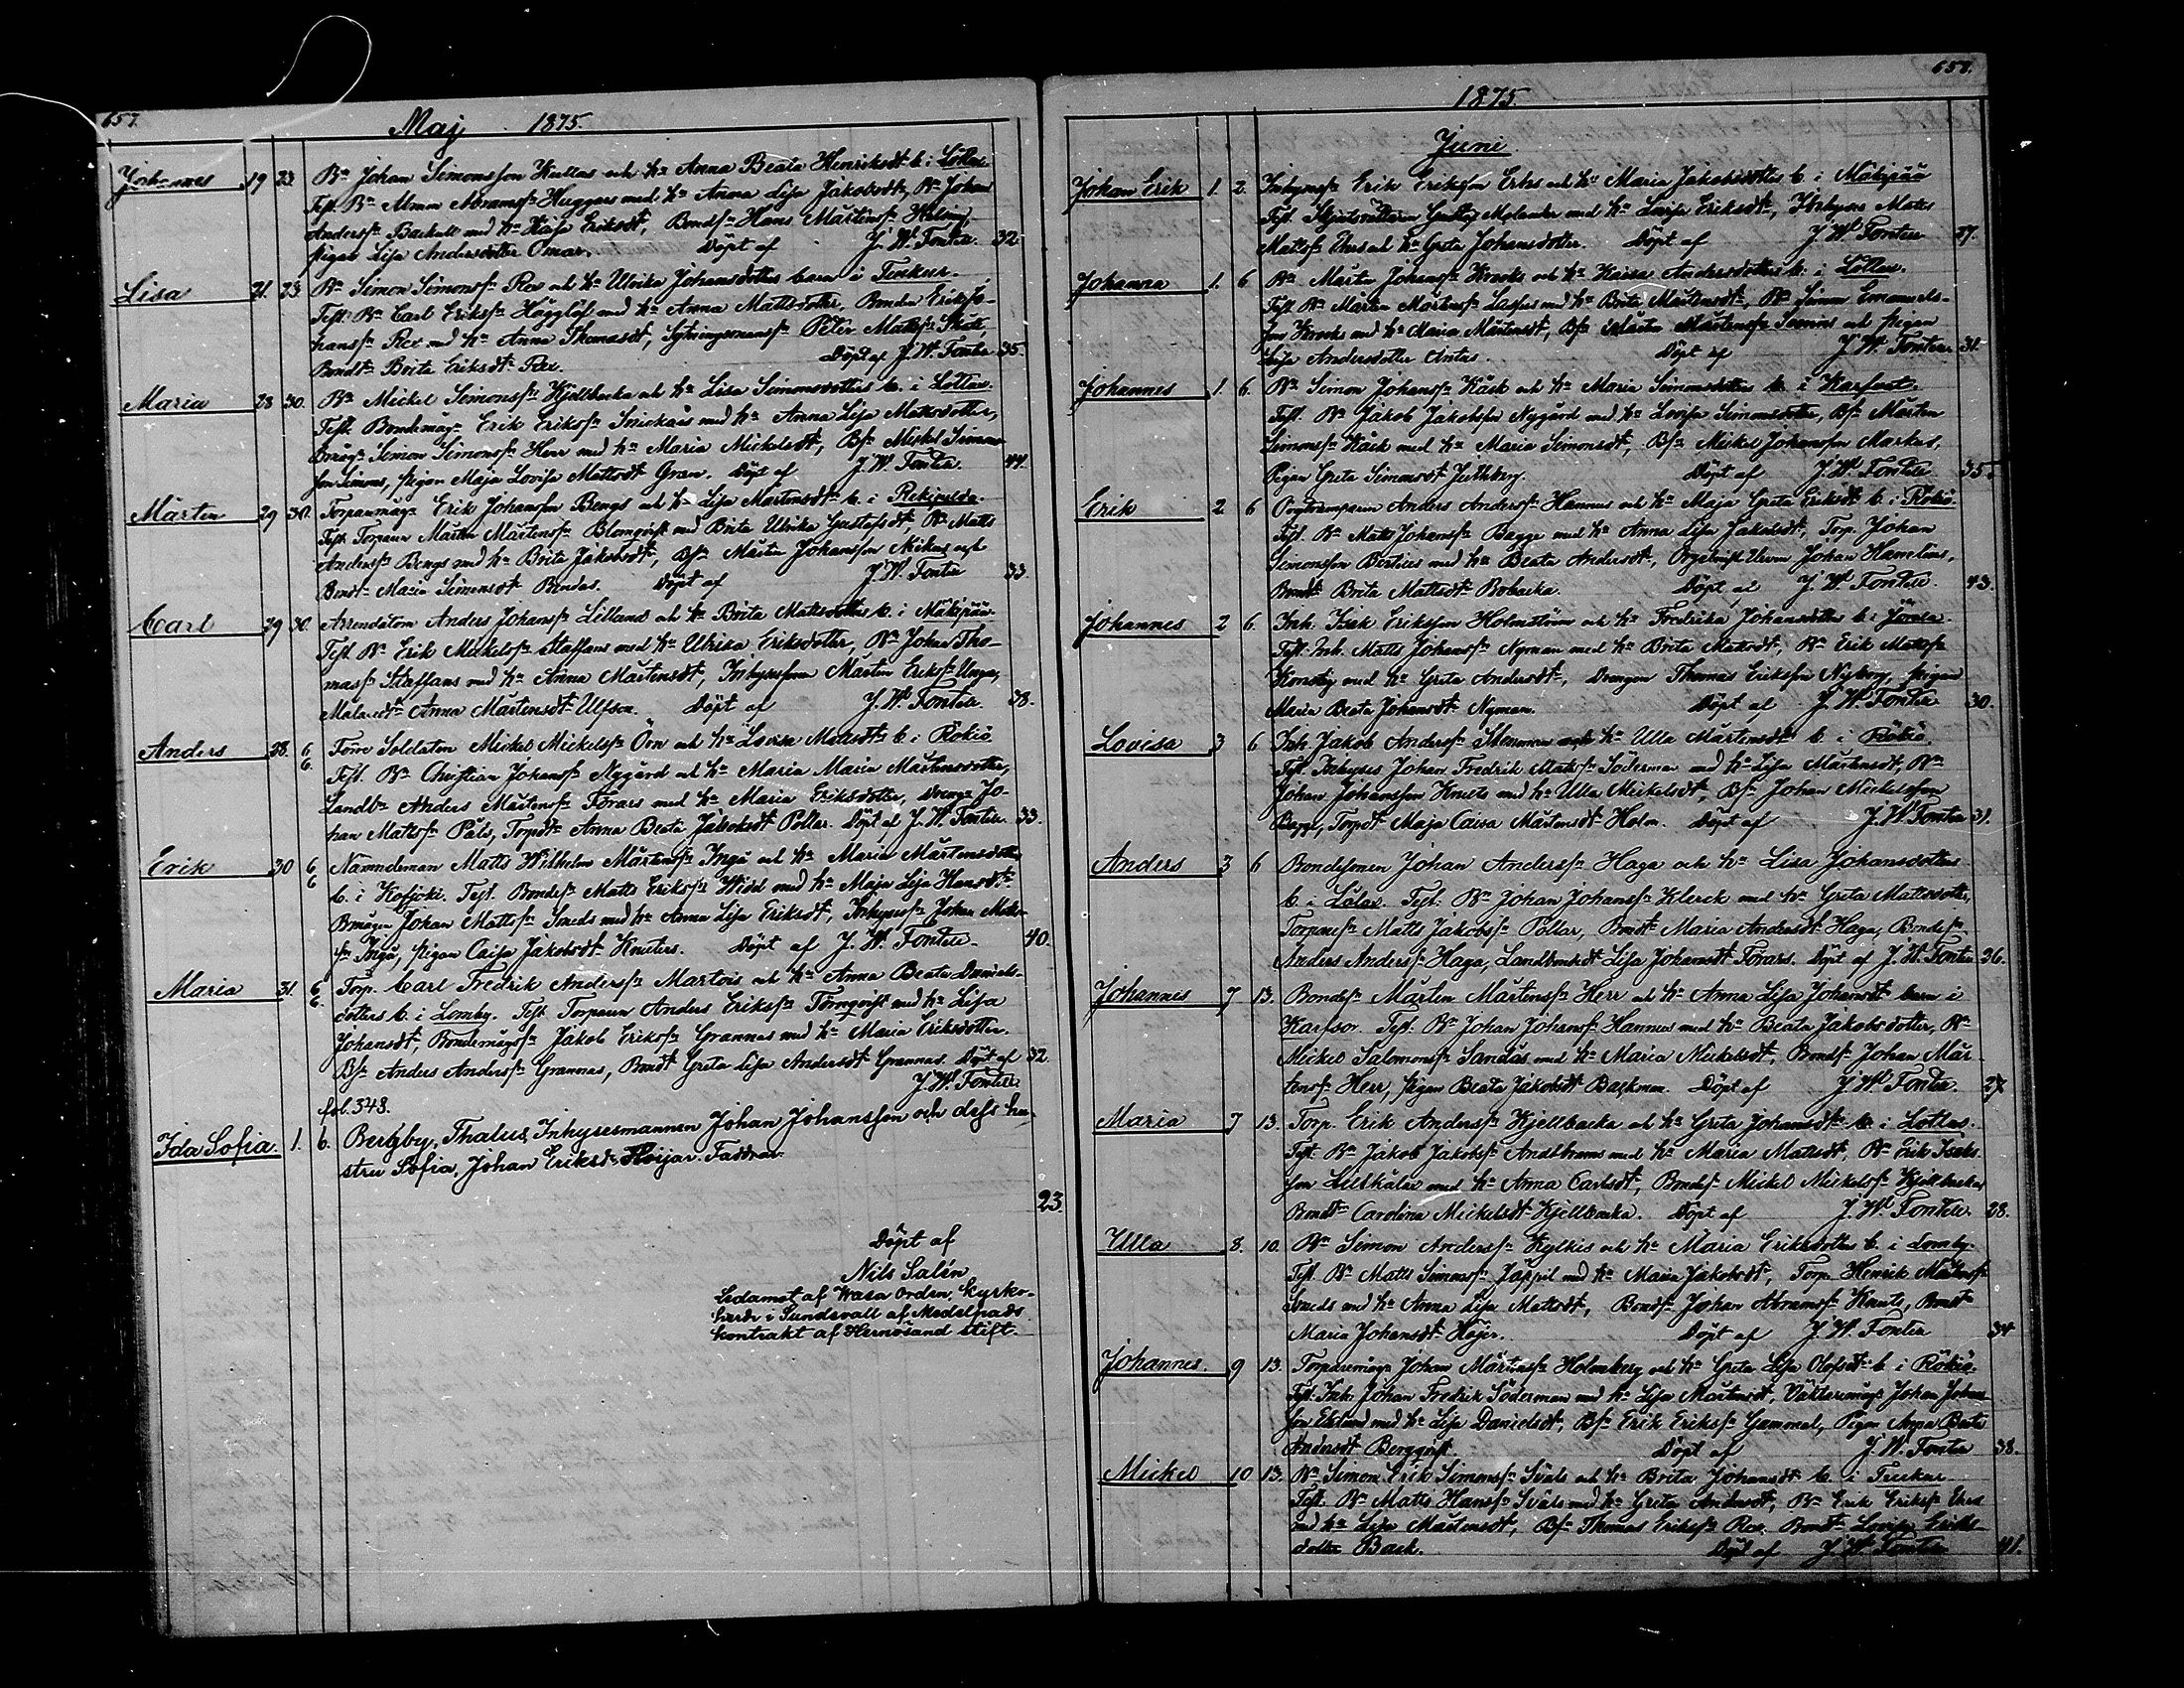 657.
Maj 1875.
Johannes 19 23. Bn Johan Simonsson Kullas och hu Anna Beata Henriksdt b. i Lotlax
Test. Bn Abrams: Huggars med hu Anna Lisa Jakobsdt, Bn Johan
Anderssn Backull med hu Kajsa Eriksdt, Bondsn Hans Mårtenssn
pigan Lisa Andersdotter Omars. Döpt af J. W. Fontell. 32.
Lisa 21. 23. Bn Simon Simonssn Rex och hu Ulrika Johansdotters barn i Tuckur.
Test. Bn Carl Erikssn Hägglöf med hu Anna Mattsdotter, Bonden Erik Jo-
hanssn Rex med hu Anna Thomasdt, Sytningsmanssn Peter Mattssn Skütt,
Bondt Brita Eriksdt Rex. Döpt af J. W. Fontell 35.
Maria 28 30. Bn Mickel Simonssn Kjellbacka och hu Lisa Simonsdotters b. i Lotlax.
Test. Bondemåg Erik Erikssn med hu Anna Lisa Mattsdotter,
Bmåg Simon Simonssn Herr med hu Maria Mickelsdt, Bsn Mickel Simons-
son Simons, pigan Maja Lovisa Mattsdt Gran. Döpt af J. W. Fontell. 44.
Mårten 29 30. Torparmåg Erik Johansson Bengs och hu Lisa Mårtensdt b. i Rekipeldo.
Test. Torparen Mårten Mårtenssn Blomqvist med Brita Ulrika Gustafsdt, Bn Matts
Anderssn Bengs med hu Brita Jakobsdt, Bsn Mårten Johansson och
Bondt Maria Simonsdt Bendas. Döpt af J. W. Fontell 33.
Carl 29 30. Arrendatorn Anders Johanssn Lillund och hu Brita Mattsdotters b. i Mäkipää.
Test. Bn Erik Mickelssn Staffans med hu Ulrika Eriksdotter, Bn Johan Tho-
massn Staffans med hu Anna Mårtensdt, Inhysessonen Mårten Erikssn Unga,
Anna Mårtensdt Ulfson. Döpt af J. W. Fontell. 38.
Anders 28. 6/6. Förre Soldaten Mickel Mickelssn Örn och hu Lovisa Mattsdts b. i Rökiö
Test. Bn Christian Johanssn Nygård och hu Maria Maria Mårtensdotter,
Landb. Anders Mårtenssn Förars med hu Maria Eriksdotter, Drengn Jo-
han Mattssn Påls, Torpdt Anna Beata Jakobsdt Pollar. Döpt af J. W. Fontell. 33.
Erik 30 6/6 Nämndeman Matts Wilhelm Mårtenssn Ingo och hu Maria Mårtensdotters
b. i Koskjöki. Test. Bondesn Matts Erikssn Widd med hu Maja Lisa Hansdt.
Bmågen Johan Mattssn Smeds med hu Anna Lisa Eriksdt, Inhysessn Johan
Ingo, pigan Caisa Jakobsdt Knuters. Döpt af J. W. Fontell. 40.
Maria 31. 6/6. Torp. Carl Fredrik Anderssn Martois och hu Anna Beata Daniels-
dotters b. i Lomby. Test. Torparen Anders Erikssn Törnqvist med hu Lisa
Johansdt, Bondemågsn Jakob Erikssn Grannas med hu Maria Eriksdotter.
Bsn Anders Anderssn Grannas, Bondt Greta Lisa Andersdt Grannas. Döpt af 32.
J. W. Fontell
fol. 348.
Ida Sofia. 1. 6. Bergby, Thalus, Inhysesmannen Johan Johansson och dess hu-
stru Sofia, Johan Eriksd. Höijar. Faddrar.
23.
Döpt af
Nils Salén
Ledamot af Wasa Orden, Kyrko-
herde i Sundsvall af Medelpads
kontrakt af Hernösand stift.
658.
1875.
Juni.
Johan Erik 1. 2. Inhysessn Erik Eriksson Ehrs och hu Maria Jakobsdotters b. i Mäkipää
Test. Gustaf Molander med hu Lovisa Eriksdt, Inhyses Matts
Mattssn Ehrs och hu Greta Johansdotter. Döpt af J. W. Fontell 27.
Johanna 1. 6 Bn Mårten Johanssn Krooks och hu Kaisa Andersdotters b. i Lotlax.
Test. Bn Mårten Mårtenssn med hu Brita Mårtensdt, Bn Simon Emanuels-
son Krooks med hu Maria Mårtensdt, Bsn Mårten Mårtenssn och pigan
Lisa Andersdotter Antas. Döpt af J. W. Fontell 31.
Johannes 1. 6. Bn Simon Johanssn Käck och hu Maria Simonsdotters b. i Karfsor.
Test. Bn Jakob Jakobsson Nygård med hu Lovisa Simonsdotter, Bsn Mårten
Simonssn Käck med hu Maria Simonsdt, Bsn Mickel Johansson Markus,
Pigan Greta Simonsdt Juthborg. Döpt af J. W. Fontell 35.
Erik 2 6 Orgtramparen Anders Anderssn Hannus och hu Maja Greta Eriksdt b. i Rökiö.
Test. Bn Matts Johanssn Bagge med hu Anna Lisa Jakobsdt, Torp. Johan
Simonsson Bertils med hu Beata Andersdt, Orgelnist Eleven Johan Hamelins,
Bondt Brita Mattsdt Bobacka. Döpt af J. W. Fontell. 43.
Johannes 2 6. Inh. Isak Eriksson Holmström och hu Fredrika Johansdotters b. i Jörala.
Test. Inh. Matts Johanssn Nyman med hu Brita Mattsdt, Bn Erik Mattssn
med hu Greta Andersdt, Drengen Thomas Eriksson Nyborg, pigan
Maria Beata Johansdt Nyman. Döpt af J. W. Fontell 30.
Lovisa 3 6 Inh. Jakob Anderssn och hu Ulla Mårtensdt b. i Rökiö.
Test. Inhyses Johan Fredrik Mattssn Söderman med hu Lisa Mårtensdt, Bn
Johan Johansson Knuts med hu Ulla Mickelsdt, Bsn Johan Mickelsson
Torpdt Maja Caisa Mårtensdt Holm. Döpt af J. W. Fontell 31.
Anders 3 6 Bondesonen Johan Anderssn Haga och hu Lisa Johansdotters
b. i Lålax. Test. Bn Johan Johanssn Klerck med hu Greta Mattsdotter,
Torparesn Matts Jakobssn Pollar, Bondt Maria Andersdt Haga, Bondesn
Anders Anderssn Haga, Landbondedt Lisa Johansdt Förars. Döpt af J. W. Fontell 36.
Johannes 7 13. Bondesn Mårten Mårtenssn Herr och hu Anna Lisa Johansdt barn i
Karfsor. Test. Bn Johan Johanssn Hannus med hu Beata Jakobsdotter, Bn
Mickel Salomonssn Sandås med hu Maria Mickelsdt, Bondsn Johan Mår-
tenssn Herr, pigan Beata Jakobsdt Backman. Döpt af J. W. Fontell. 27
Maria 7 13. Torp. Erik Anderssn Kjellbacka och hu Greta Johansdt b. i Lotlax.
Test. Bn Jakob Jakobssn Andtbrams med hu Maria Mattsdt, Bn Erik Isaks-
son Lillkålax med hu Anna Carlsdt, Bondesn Mickel Mickelssn Kjellbacka,
Bondt Carolina Mickelsdt Kjellbacka. Döpt af J. W. Fontell. 28.
Ulla 8. 10. Bn Simon Anderssn Kylkis och hu Maria Eriksdotters b. i Lomby.
Test. Bn Matts Simonssn Jappil med hu Maria Jakobsdt, Torp. Henrik Mårtenssn
Smeds med hu Anna Lisa Mattsdt, Bondsn Johan Abramssn Knuts, Bondt
Maria Johansdt Höjer. Döpt af J. W. Fontell 34
Johannes. 9 13. Torparemåg Johan Mårtenssn Holmberg och hu Greta Lisa Olofsdt b. i Rökiö.
Test. Inh. Johan Fredrik Söderman med hu Lisa Mårtensdt, Väktaremåg Johan Johans-
son Eklund med hu Lisa Danielsdt, Bsn Erik Erikssn Gammal, Pigan Anna Beata
Andersdt Bergqvist. Döpt af J. W. Fontell 38.
Mickel 10 13. Bn Simon Erik Simonssn Svals och hu Brita Johansdt b. i Tuckur.
Test. Bn Matts Hanssn Svals med hu Greta Andersdt, Bn Erik Erikssn Ehrs
med hu Lisa Mårtensdt, Bsn Thomas Erikssn Rex, Bondt Lovisa Eriks-
dotter Back. Döpt af J. W. Fontell 41.